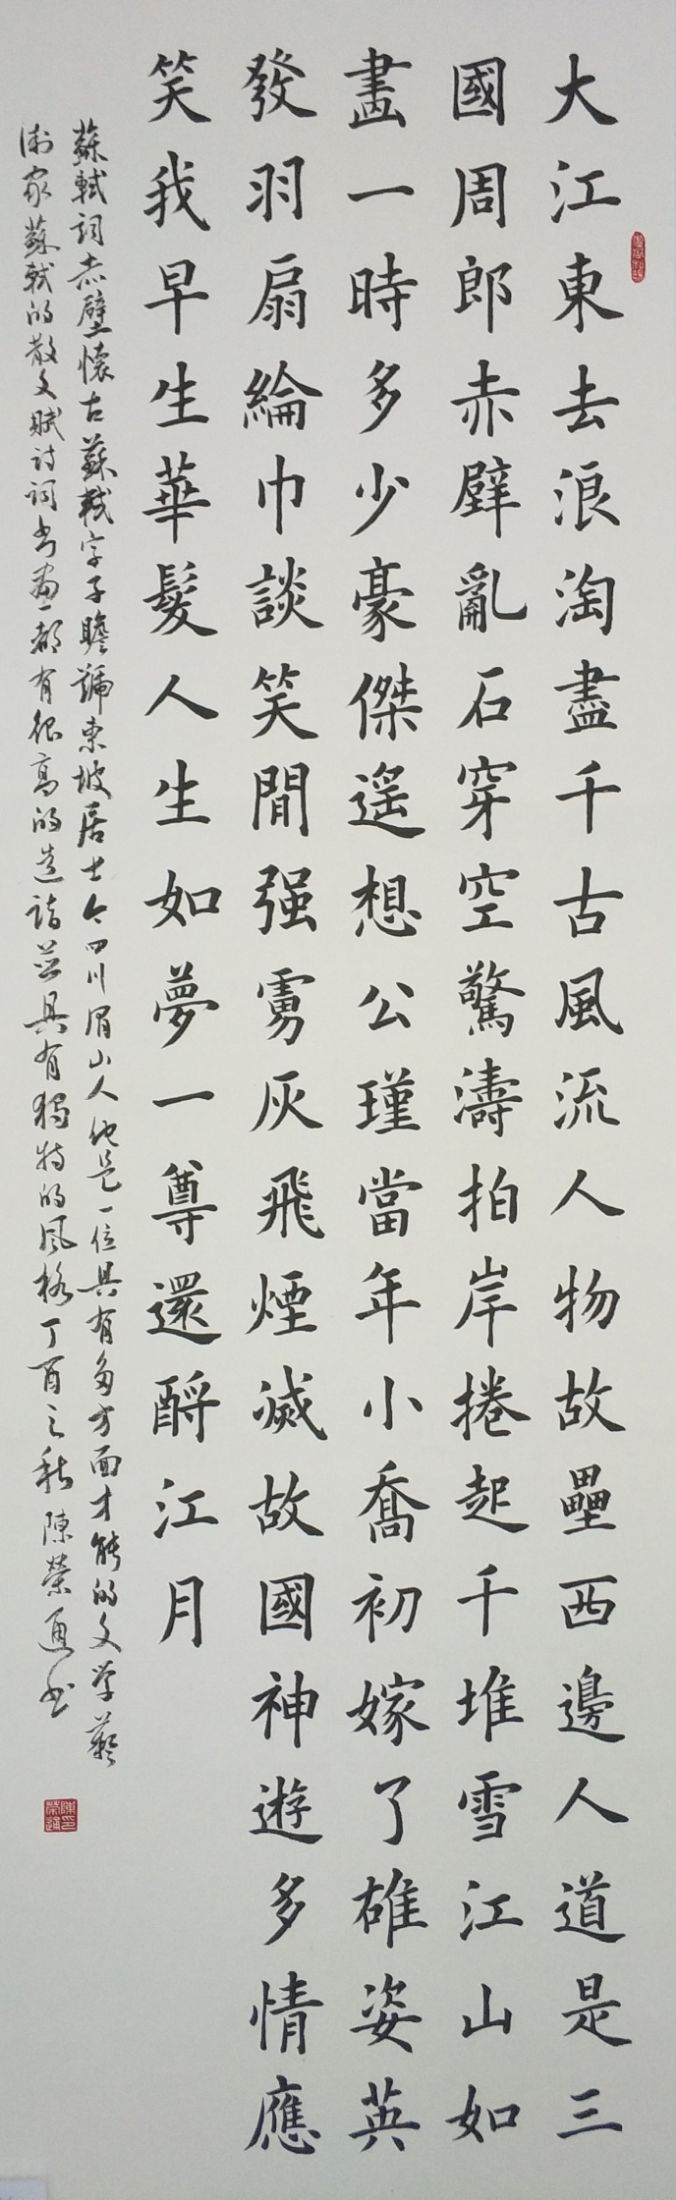 大江東去浪淘盡千古風流人物故壘西邊人道是三
國周郎赤壁亂石穿空驚濤拍岸捲起千堆雪江山如
畫一時多少豪傑遥想公瑾當年小喬初嫁了雄姿英
發羽扇綸巾談笑間强虜灰飛煙滅故國神遊多情應
笑我早生華髮人生如夢一尊還酹江月
蘇軾词赤壁懷古蘇軾字子瞻號東坡居士今四川眉山人他是一位具有多方面才能的文学藝
術家蘇軾的散文赋诗词书画都有很高的造诣并具有独特的风格丁酉之秋陳榮通书
陳榮通印